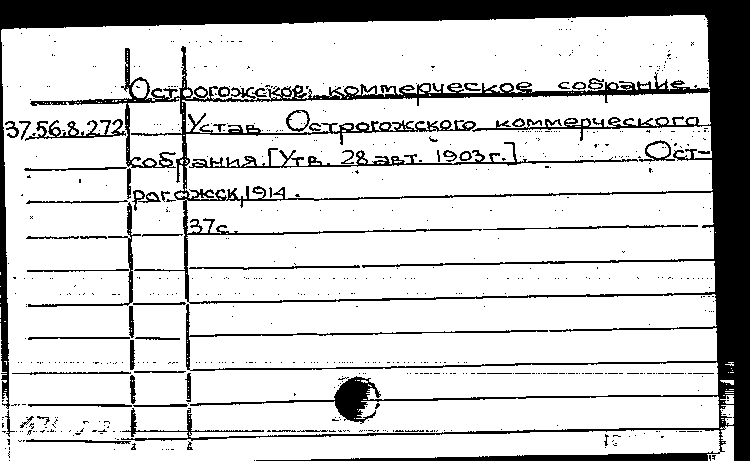 Острогожское коммерческое собрание.
37.56.8.272 Устав Острогожского коммерческого
собрания. [Утв. 28 авг. 1903 г.] Ост-
рогожск, 1914.
37с.